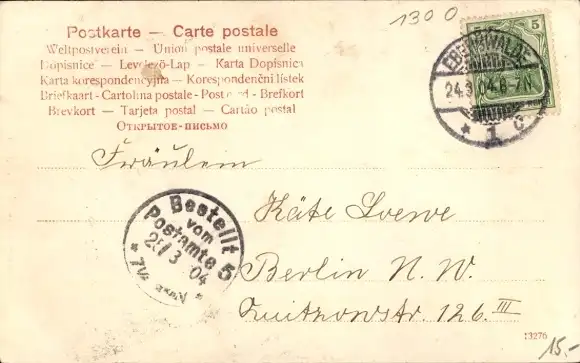 1300
Postkarte — Carte postale
Weltpostverein — Union postale universelle
Dopisnice — Levelező-Lap — Karta Dopisnici
Karta korespondencyjna — Korespondenční lístek
Briefkaart - Cartolina postale - Post c rd - Brefkort
Brevkort — Tarjeta postal — Cartão postal
Открытое-письмо
5
EBERSWALDE
24.3 04.6-7N
* 1 c
Fräulein
Bestellt
vom
Postamte 5
25/3 04
Käte Loewe
Berlin N. W.
Quitzowstr. 126 III
13270
15.-